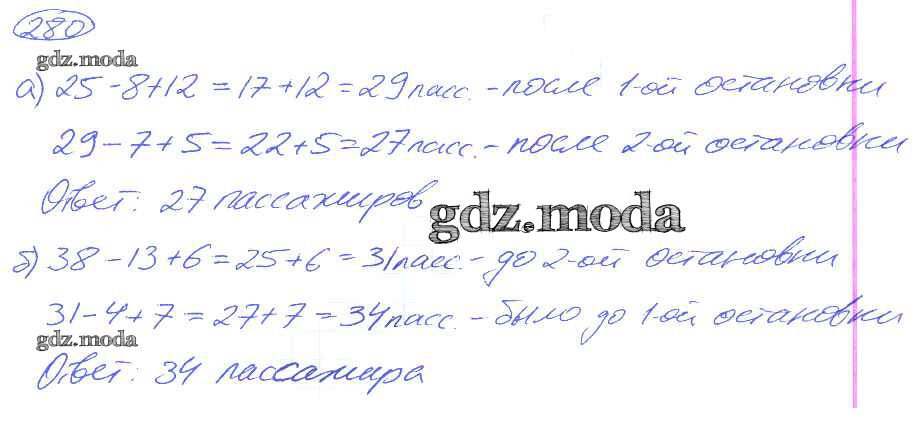 280
gdz.moda
а) 25 - 8 + 12 = 17 + 12 = 29 пасс. - после 1-ой остановки
29 - 7 + 5 = 22 + 5 = 27 пасс. - после 2-ой остановки
Ответ: 27 пассажиров
gdz.moda
б) 38 - 13 + 6 = 25 + 6 = 31 пасс. - до 2-ой остановки
31 - 4 + 7 = 27 + 7 = 34 пасс. - было до 1-ой остановки
gdz.moda
Ответ: 34 пассажира